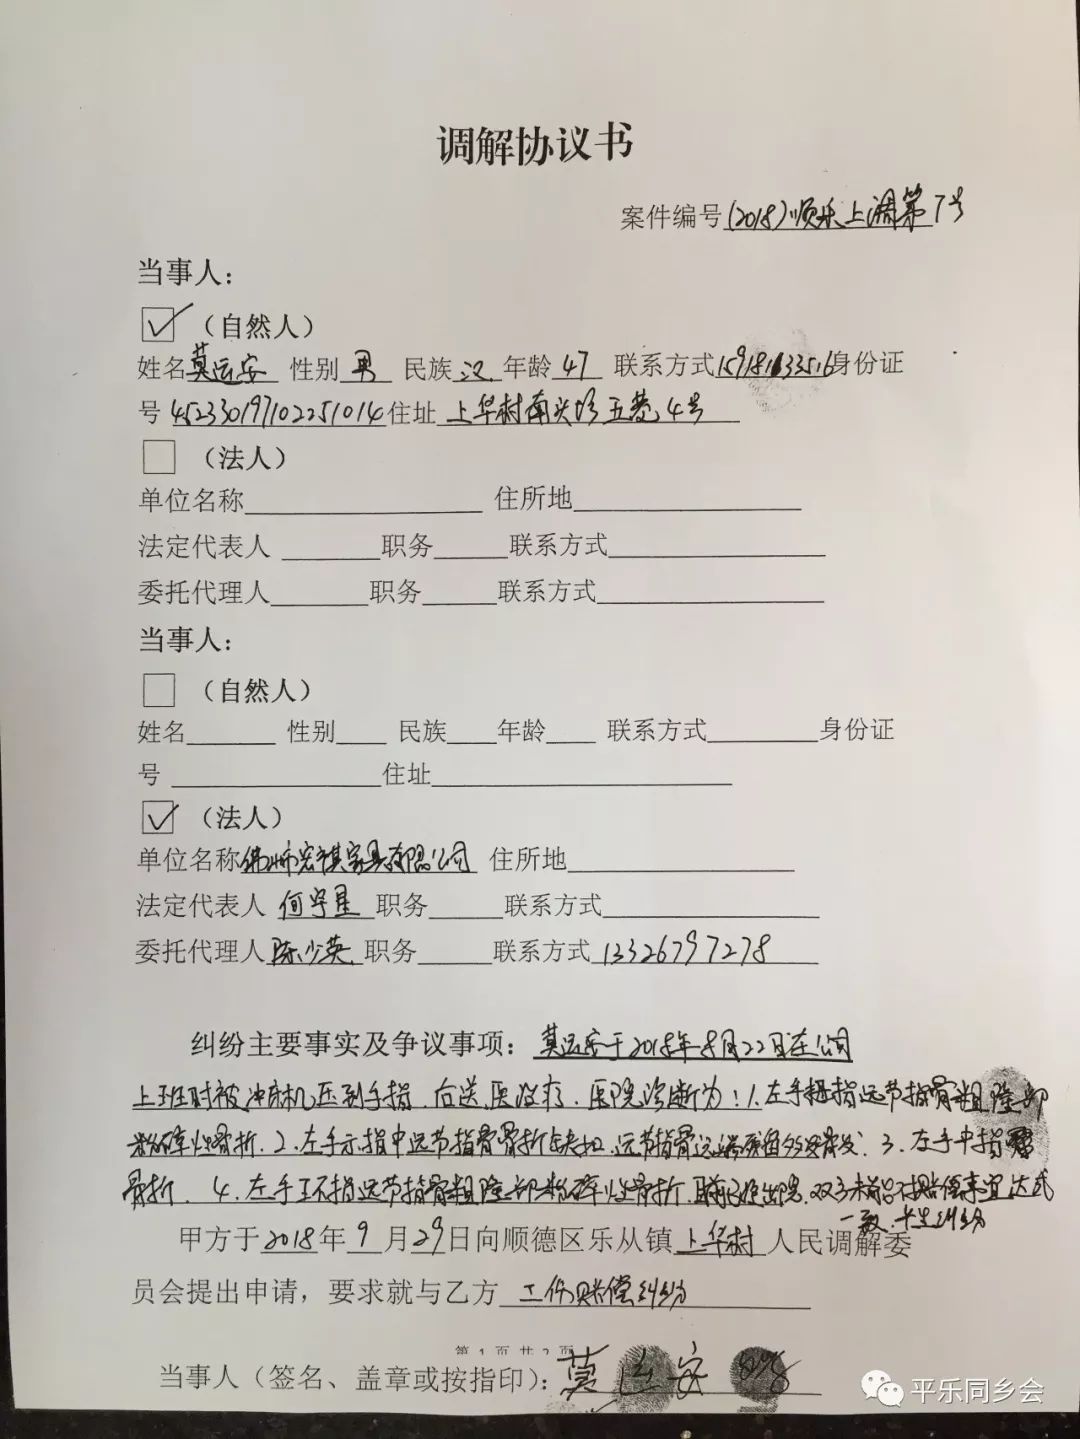 调解协议书
案件编号(2018)顺乐上调第7号
当事人：
（自然人）
姓名莫运安 性别 男 民族 汉 年龄 47 联系方式15918133516身份证
号 452330197102251014住址 上华村南兴坊五巷4号
（法人）
单位名称 住所地
法定代表人 职务 联系方式
委托代理人 职务 联系方式
当事人：
（自然人）
姓名 性别 民族 年龄 联系方式 身份证
号 住址
（法人）
单位名称佛山市宏祺家具有限公司 住所地
法定代表人 何宇星 职务 联系方式
委托代理人陈少英 职务 联系方式 13326797278
纠纷主要事实及争议事项：莫运安于2018年8月22日在公司
上班时被冲床机压到手指，后送医治疗，医院诊断为：1.左手拇指远节指骨粗隆部
粉碎性骨折．2．左手示指中远节指骨骨折缺损，远节指骨远端残留多发骨发．3．左手中指
骨折．4．左手环指远节指骨粗隆部粉碎性骨折．目前已经出院，双方未能就赔偿事宜达成
一致，产生纠纷
甲方于2018年9月29日向顺德区乐从镇上华村人民调解委
员会提出申请，要求就与乙方 工伤赔偿纠纷
第 1 页 共 2 页
当事人（签名、盖章或按指印）：莫运安
平乐同乡会